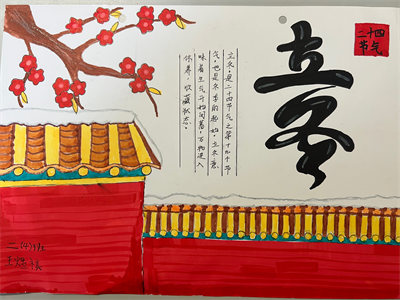 二十四
节气
立冬
立冬,是二十四节气之第十九个节
气,也是冬季的起始。立冬,意
味着生气开始闭蓄,万物进入
休养、收藏状态。
二(4)班